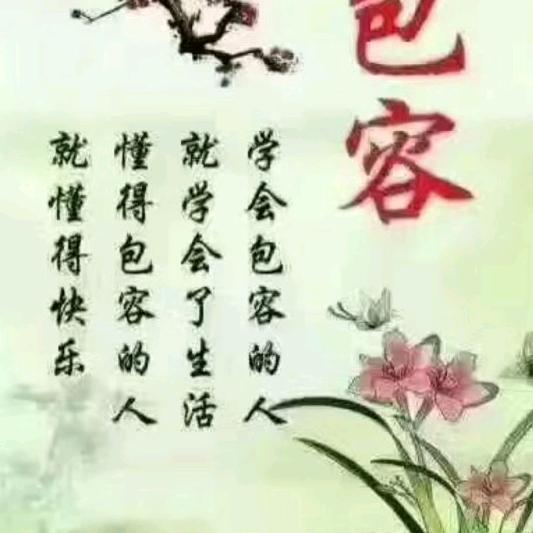 包容
学会包容的人
就学会了生活
懂得包容的人
就懂得快乐